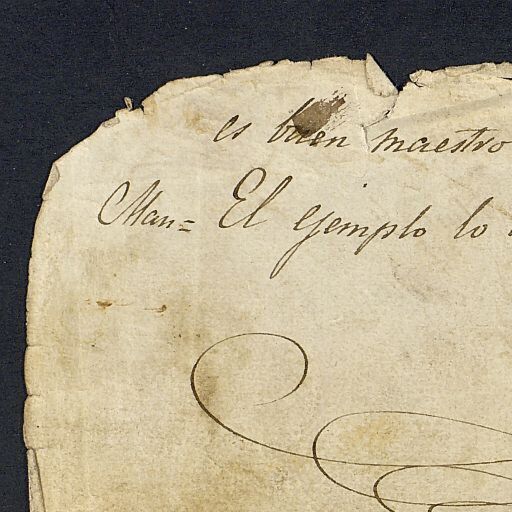 es buen maestro
Man= El ejemplo lo